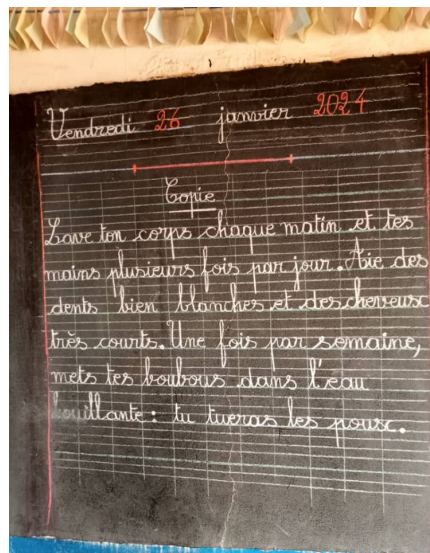 Vendredi 26 janvier 2024
Copie
Lave ton corps chaque matin et tes
mains plusieurs fois par jour. Aie des
dents bien blanches et des cheveux
très courts. Une fois par semaine,
mets tes boubous dans l'eau
bouillante : tu tueras les poux.